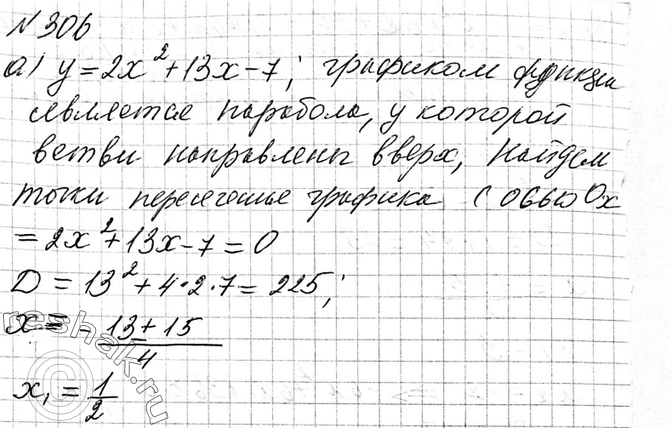 №306
а) y = 2x² + 13x - 7; графиком функции
является парабола, у которой
ветви направлены вверх, Найдем
точки пересечение графика с осью Ox
= 2x² + 13x - 7 = 0
D = 13² + 4·2·7 = 225;
x = -13 ± 15 / 4
x₁ = 1/2
reshak.ru